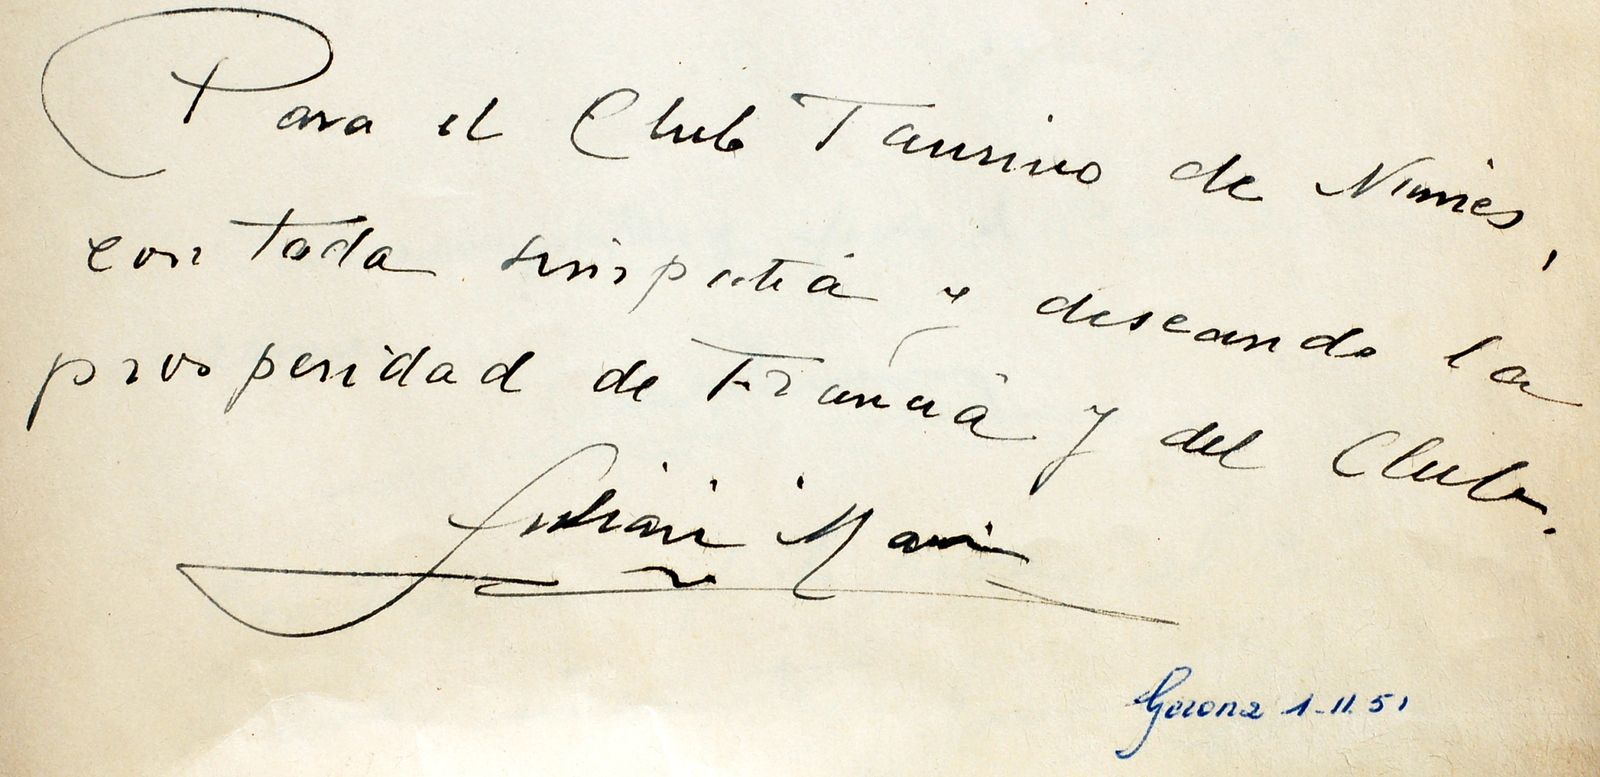 Para el Club Taurino de Nimes,
con toda simpatia y deseando la
prosperidad de Francia y del Club.
Julián Marin
Gerona 1-11.51